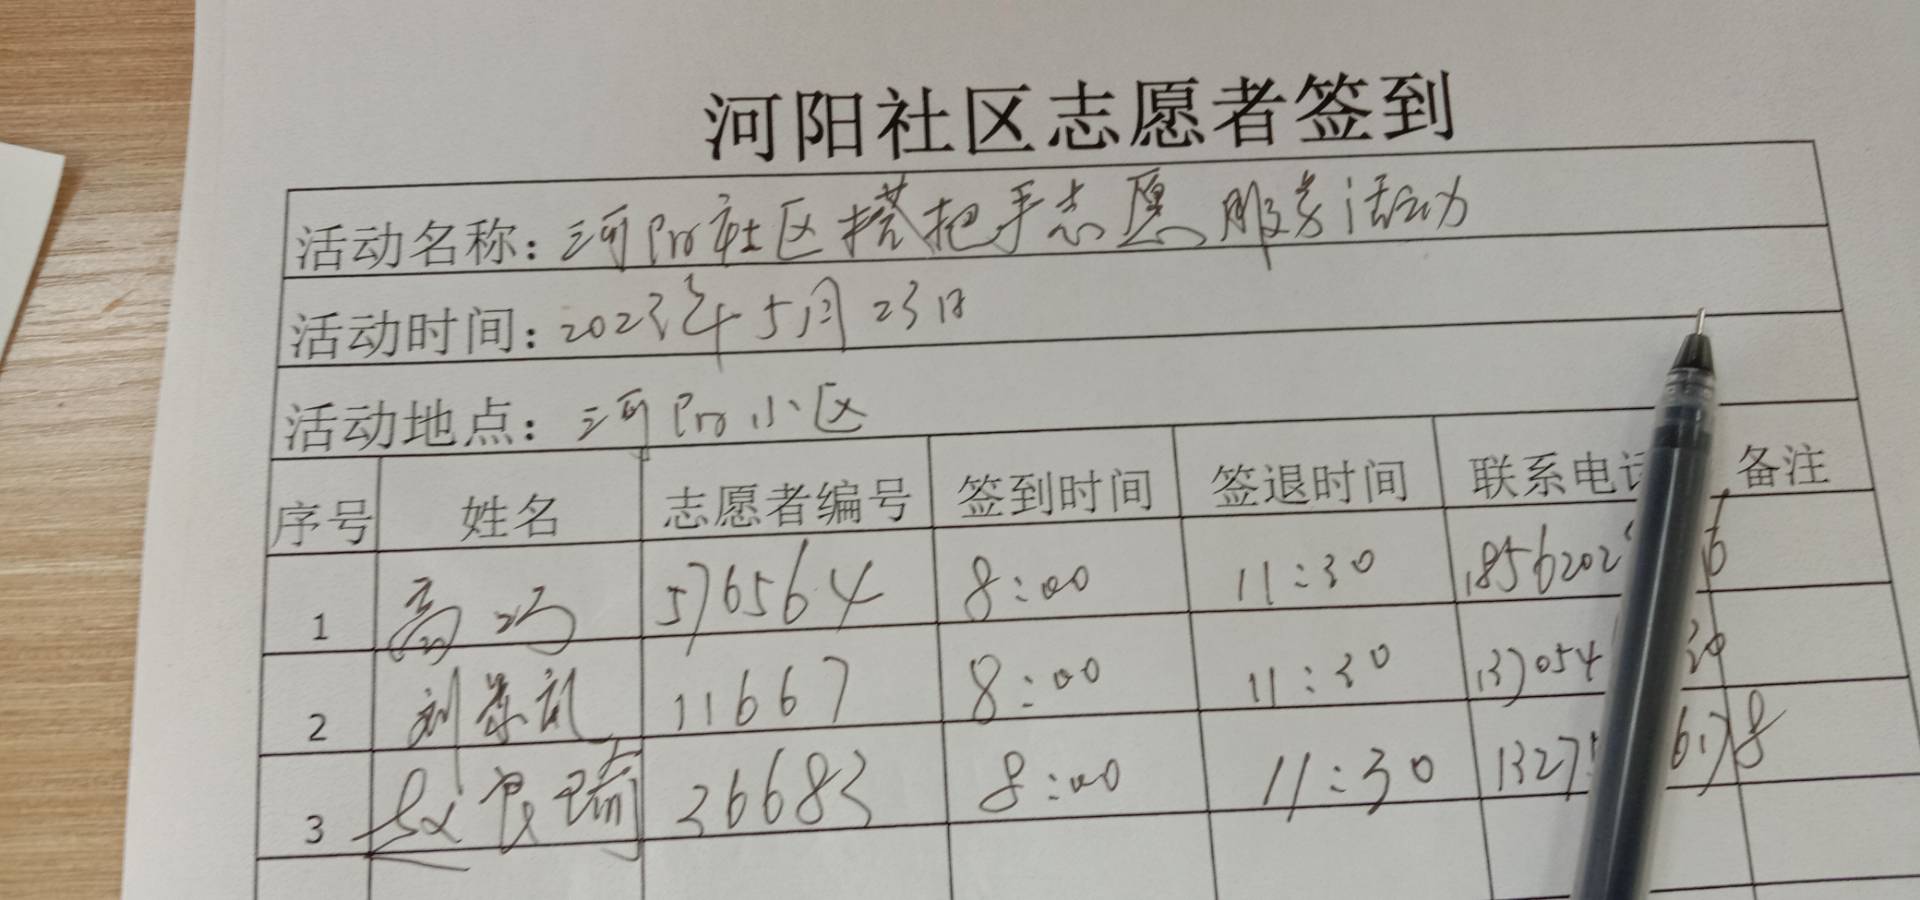 河阳社区志愿者签到
活动名称：河阳社区搭把手志愿服务活动
活动时间：2023年5月23日
活动地点：河阳小区
序号 姓名 志愿者编号 签到时间 签退时间 联系电话 备注
1 高巧 576564 8:00 11:30 1856202 6
2 刘 礼 11667 8:00 11:30 137054 20
3 赵良瑞 26683 8:00 11:30 1327 6178